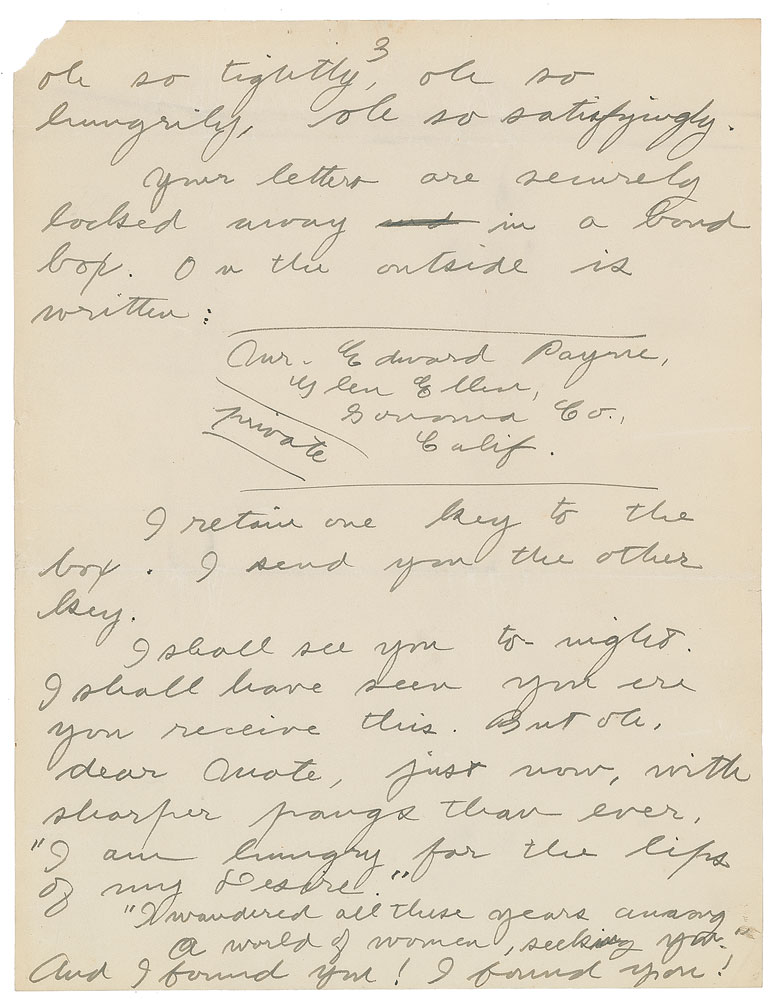 3
oh so tightly, oh so
hungrily, oh so satisfyingly.
Your letters are securely
locked away and in a bond
box. On the outside is
written:
Mr. Edward Payne,
Glen Ellen,
Sonoma Co.,
Calif.
private
I retain one key to the
box. I send you the other
key.
I shall see you to-night.
I shall have seen you ere
you receive this. But oh,
dear Mate, just now, with
sharper pangs than ever,
"I am hungry for the lips
of my Desire."
"I wandered all these years among
a world of women, seeking you."
And I found you! I found you!